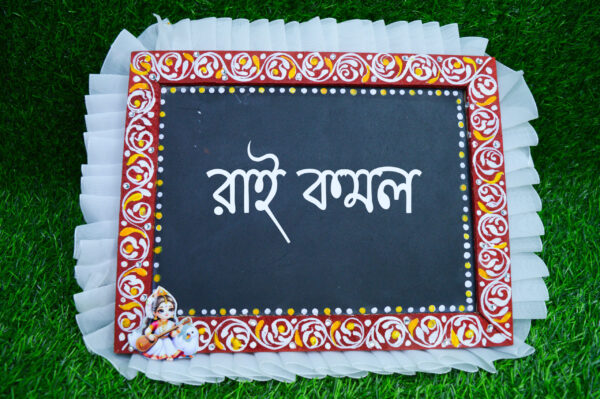 রাই কমল